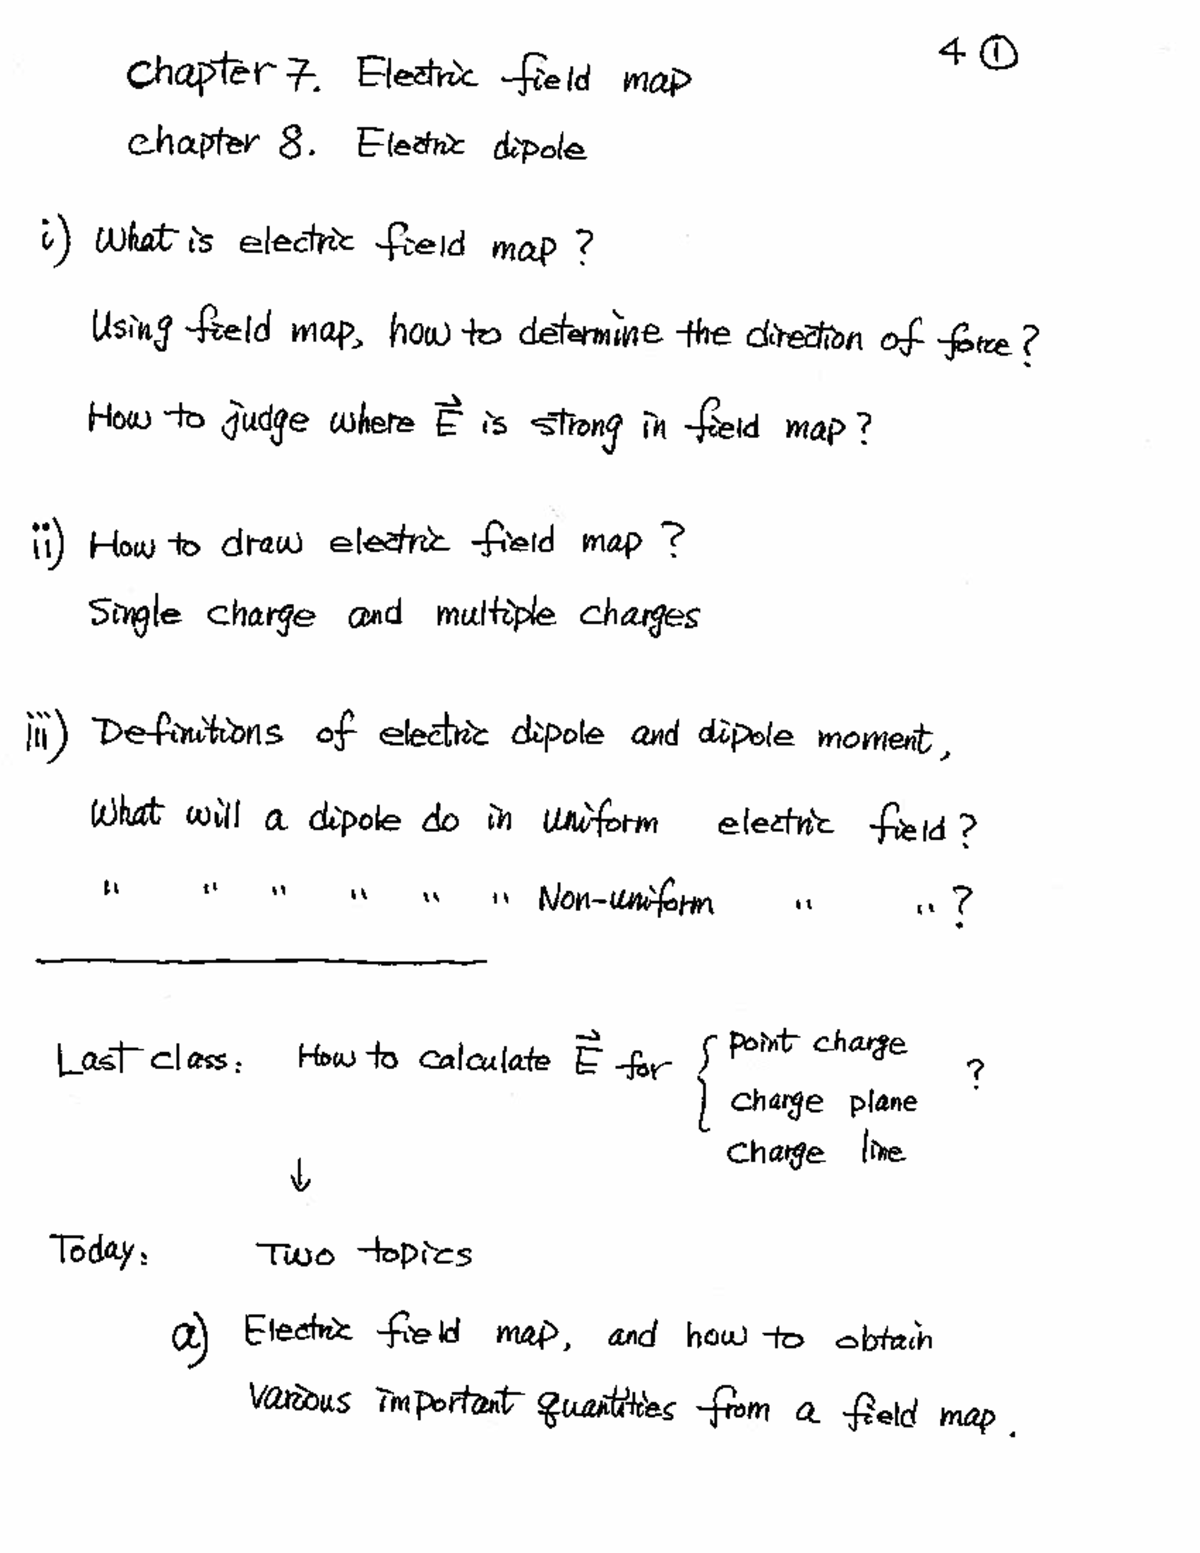 4 ①
Chapter 7. Electric field map
Chapter 8. Electric dipole
i) What is electric field map?
Using field map, how to determine the direction of force?
How to judge where E⃗ is strong in field map?
ii) How to draw electric field map?
Single charge and multiple charges
iii) Definitions of electric dipole and dipole moment,
What will a dipole do in uniform electric field?
" " " " " " Non-uniform " " ?
Last class: How to calculate E⃗ for { point charge
charge plane ?
charge line
↓
Today: Two topics
a) Electric field map, and how to obtain
various important quantities from a field map.